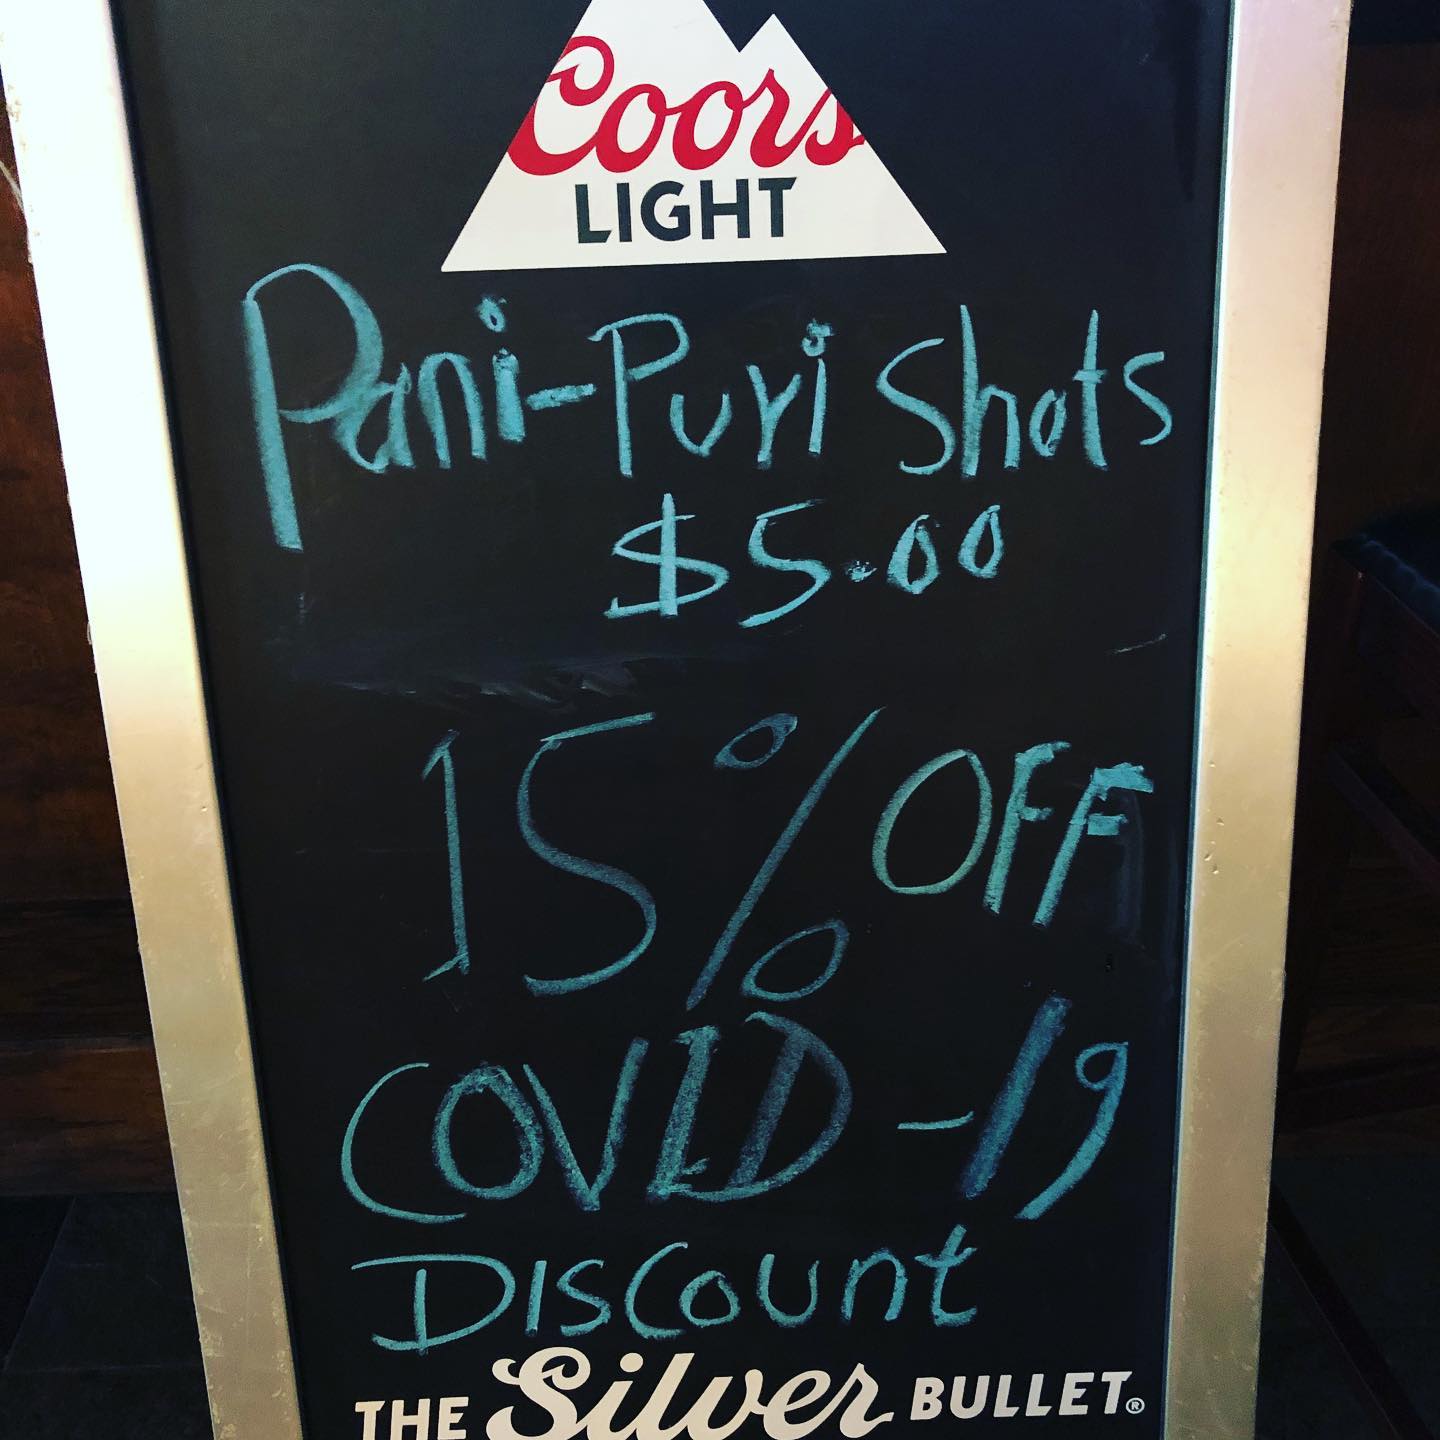 Coors
LIGHT
Pani-Puri Shots
$5.00
15% OFF
COVID-19
Discount
THE Silver BULLET®